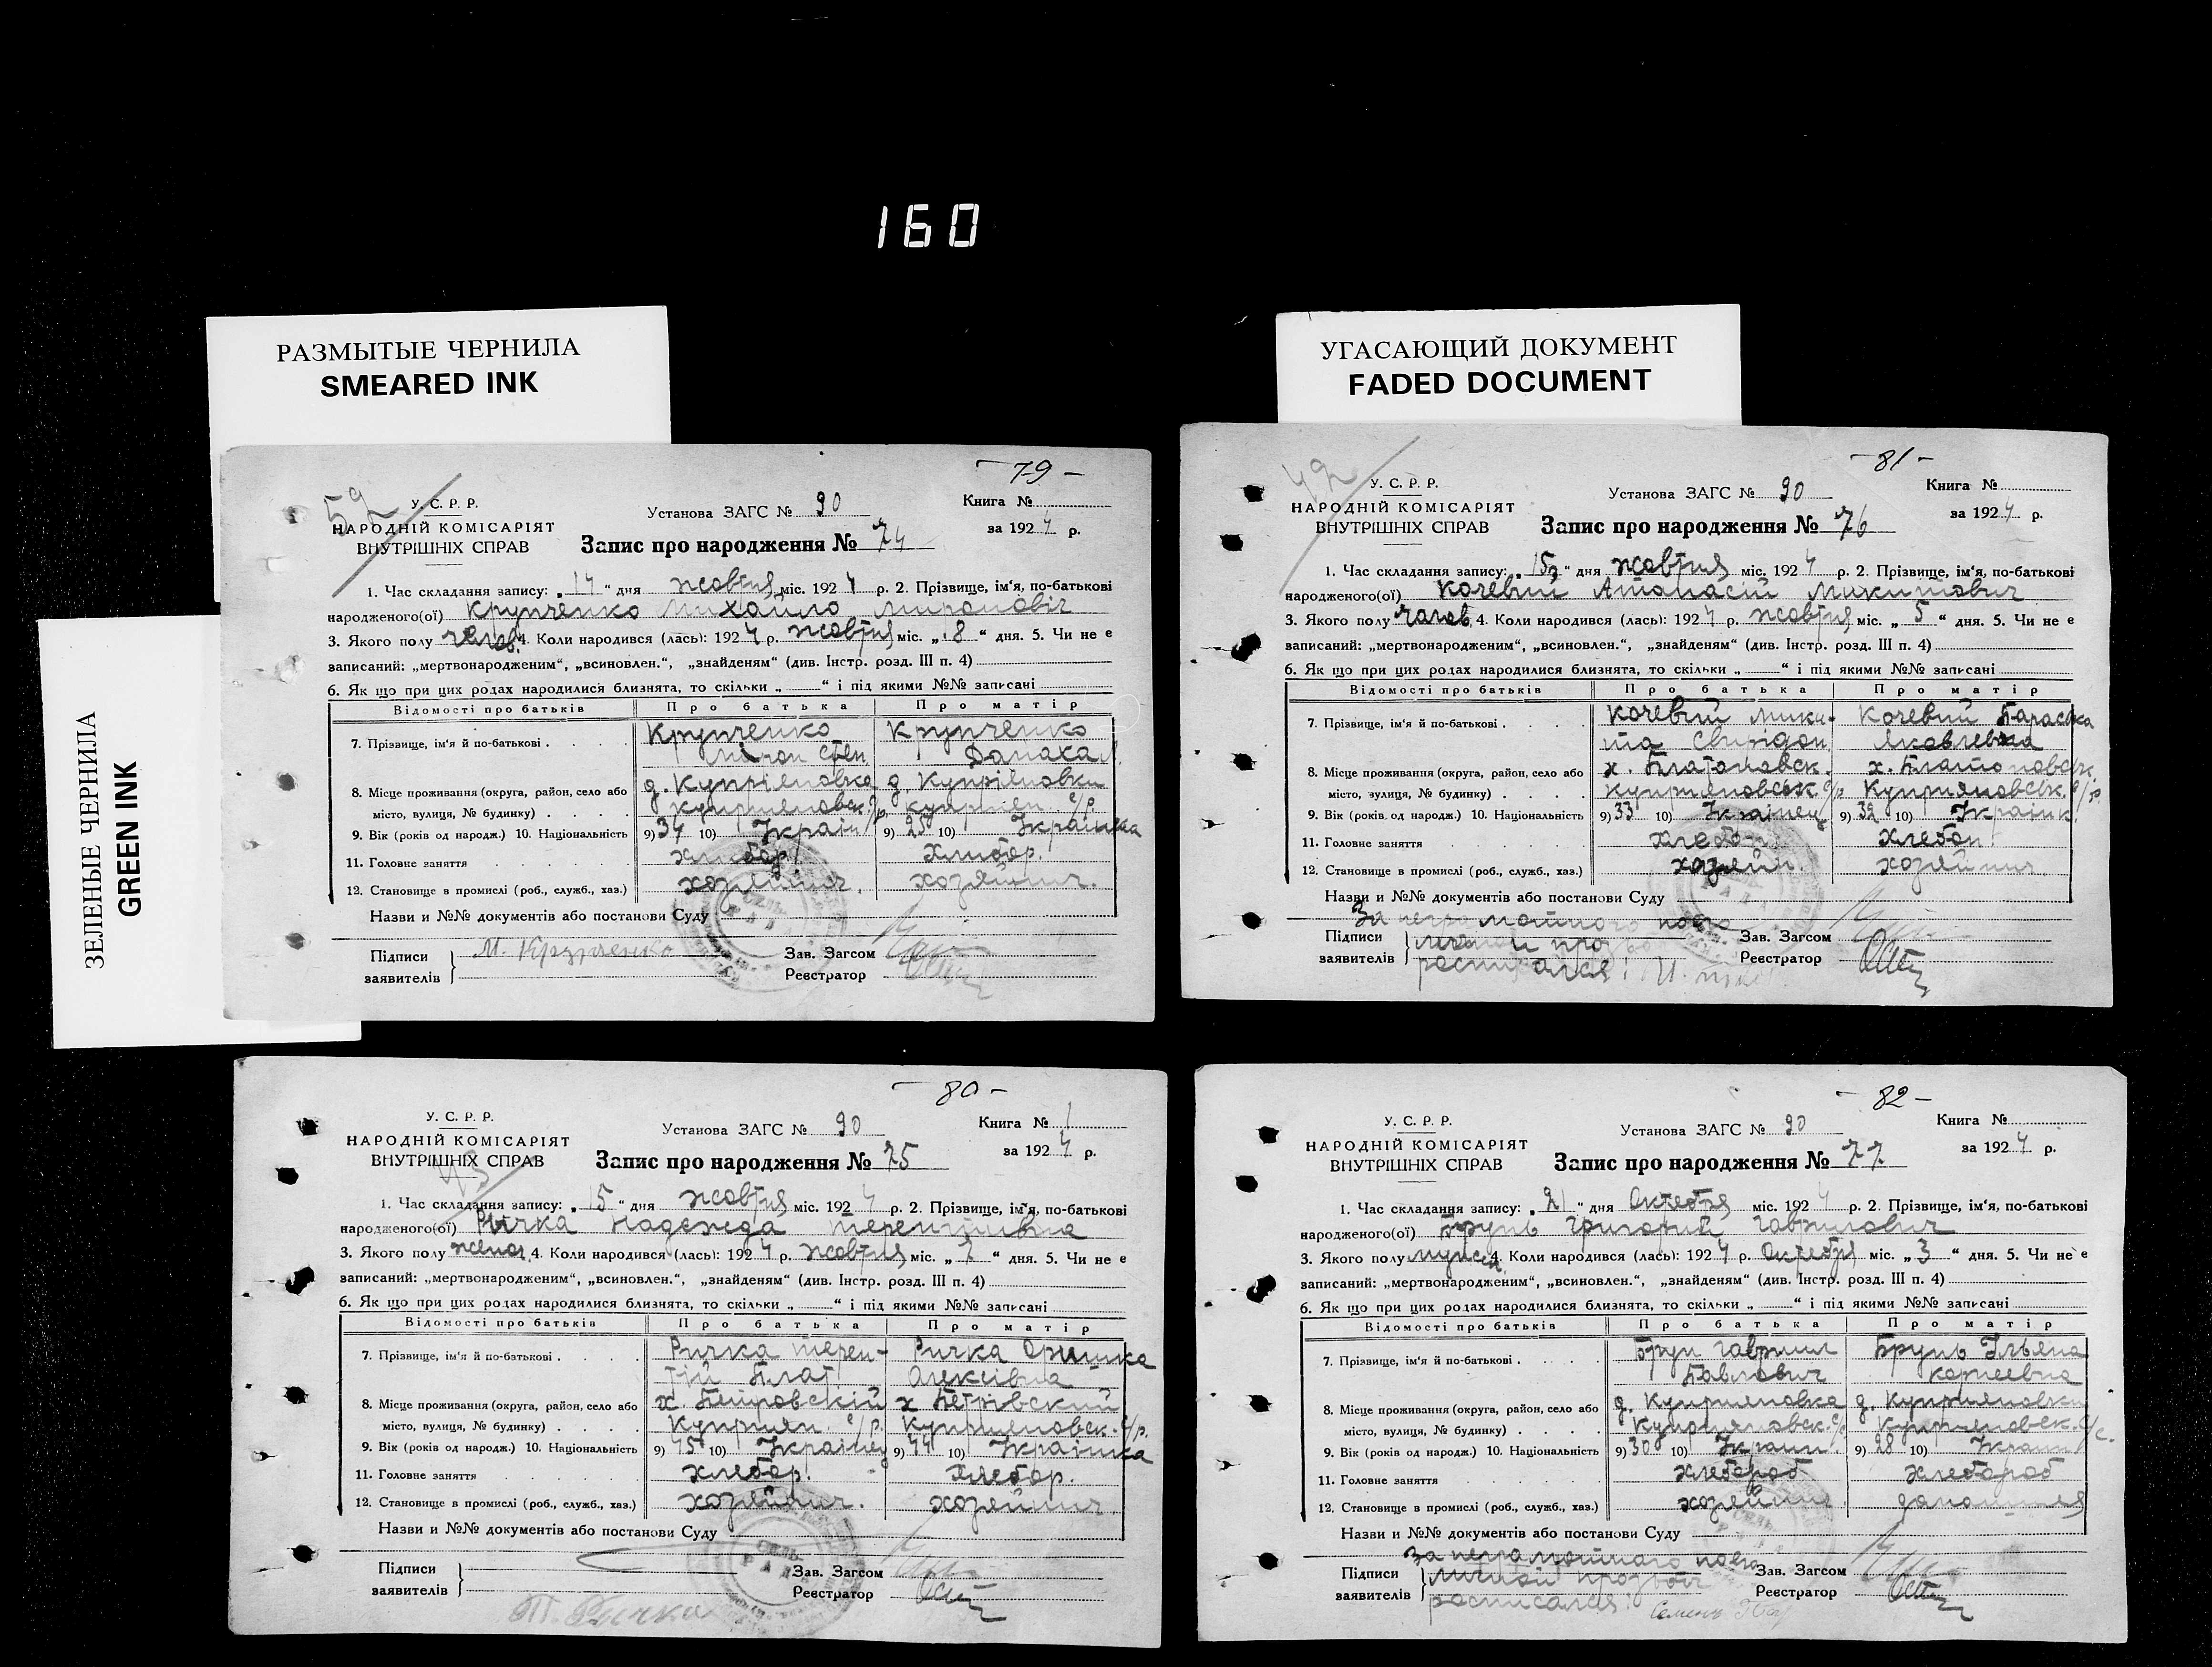 160
РАЗМЫТЫЕ ЧЕРНИЛА
SMEARED INK
УГАСАЮЩИЙ ДОКУМЕНТ
FADED DOCUMENT
ЗЕЛЕНЫЕ ЧЕРНИЛА
GREEN INK
- 79 -
52
У. С. Р. Р.
НАРОДНІЙ КОМІСАРІЯТ
ВНУТРІШНІХ СПРАВ
Установа ЗАГС № 90
Книга №
за 1924 р.
Запис про народження № 74
1. Час складання запису: „14“ дня жовтня міс. 1924 р. 2. Прізвище, ім'я, по-батькові
народженого(ої) Крупченко Михайло Миронович
3. Якого полу 4. Коли народився (лась): 1924 р. жовтня міс. „8“ дня. 5. Чи не е
записаний: „мертвонародженим“, „всиновлен.“, „знайденям“ (див. Інстр. розд. III п. 4)
6. Як що при цих родах народилися близнята, то скільки „ “ і під якими №№ записані
Відомості про батьків Про батька Про матір
7. Прізвище, ім'я й по-батькові Крупченко Крупченко
Мирон Степ
8. Місце проживання (округа, район, село або д. Купріяновка д. Купріяновки
місто, вулиця, № будинку) куприяновск. с/р куприян. с/р
9. Вік (років од народж.) 10. Національність 9) 34 10) Україн 9) 25 10) Українка
11. Головне заняття хлибор. хлибор.
12. Становище в промислі (роб., служб., хаз.) хозяйнич. хозяйнич.
Назви и №№ документів або постанови Суду
Підписи М. Крупченко Зав. Загсом
заявителів Реєстратор
- 81 -
42
У. С. Р. Р.
НАРОДНІЙ КОМІСАРІЯТ
ВНУТРІШНІХ СПРАВ
Установа ЗАГС № 90
Книга №
за 1924 р.
Запис про народження № 76
1. Час складання запису: „15“ дня жовтня міс. 1924 р. 2. Прізвище, ім'я, по-батькові
народженого(ої) Кочевий Атанасій Микитович
3. Якого полу чолов. 4. Коли народився (лась): 1924 р. жовтня міс. „5“ дня. 5. Чи не е
записаний: „мертвонародженим“, „всиновлен.“, „знайденям“ (див. Інстр. розд. III п. 4)
6. Як що при цих родах народилися близнята, то скільки „ “ і під якими №№ записані
Відомості про батьків Про батька Про матір
7. Прізвище, ім'я й по-батькові Кочевий Мики- Кочевий Параска
та Свирідон Яковлевна
8. Місце проживання (округа, район, село або х. Платоновск. х. Платоновск.
місто, вулиця, № будинку) куприяновськ. с/р Куприяновськ. с/р.
9. Вік (років од народж.) 10. Національність 9) 33 10) Українец 9) 32 10) Українк.
11. Головне заняття хлебор. хлебор.
12. Становище в промислі (роб., служб., хаз.) хозяйн. хозяйнич.
Назви и №№ документів або постанови Суду
За неграмотного по его
Підписи личной прозьбе Зав. Загсом
заявителів росписался: Реєстратор
- 80 -
43
У. С. Р. Р.
НАРОДНІЙ КОМІСАРІЯТ
ВНУТРІШНІХ СПРАВ
Установа ЗАГС № 90
Книга № 1
за 1924 р.
Запис про народження № 75
1. Час складання запису: „15“ дня жовтня міс. 1924 р. 2. Прізвище, ім'я, по-батькові
народженого(ої) Ричка Надежда Терентіивна
3. Якого полу женоч. 4. Коли народився (лась): 1924 р. жовтня міс. „7“ дня. 5. Чи не е
записаний: „мертвонародженим“, „всиновлен.“, „знайденям“ (див. Інстр. розд. III п. 4)
6. Як що при цих родах народилися близнята, то скільки „ “ і під якими №№ записані
Відомості про батьків Про батька Про матір
7. Прізвище, ім'я й по-батькові Ричка Терен- Ричка Оришка
тій Плат Алексівна
8. Місце проживання (округа, район, село або х. Петровскій х Петрівский
місто, вулиця, № будинку) Куприян. с/р. Куприяновск. с/р.
9. Вік (років од народж.) 10. Національність 9) 45 10) Українец 9) 44 10) Українка
11. Головне заняття хлебор. хлебор.
12. Становище в промислі (роб., служб., хаз.) хозяйнич. хозяйнич
Назви и №№ документів або постанови Суду
Підписи Зав. Загсом
заявителів Реєстратор
Т. Рычка
- 82 -
У. С. Р. Р.
НАРОДНІЙ КОМІСАРІЯТ
ВНУТРІШНІХ СПРАВ
Установа ЗАГС № 90
Книга №
за 1924 р.
Запис про народження № 77
1. Час складання запису: „21“ дня Октября міс. 1924 р. 2. Прізвище, ім'я, по-батькові
народженого(ої) Брунь Григорий Гаврилович
3. Якого полу мужск. 4. Коли народився (лась): 1924 р. Октября міс. „3“ дня. 5. Чи не е
записаний: „мертвонародженим“, „всиновлен.“, „знайденям“ (див. Інстр. розд. III п. 4)
6. Як що при цих родах народилися близнята, то скільки „ “ і під якими №№ записані
Відомості про батьків Про батька Про матір
7. Прізвище, ім'я й по-батькові Брун Гавриил Брунь Ульяна
Павлович Корнеевна
8. Місце проживання (округа, район, село або д. Куприяновка д. Куприяновки
місто, вулиця, № будинку) Куприяновск. с/с Куприяновск. с/с.
9. Вік (років од народж.) 10. Національність 9) 30 10) Украин. 9) 28 10) Украин.
11. Головне заняття хлебороб хлебороб
12. Становище в промислі (роб., служб., хаз.) хозяйнич.
Назви и №№ документів або постанови Суду
За неграмотнаго по его
Підписи личной прозьбе Зав. Загсом
заявителів росписался: Реєстратор
Семень